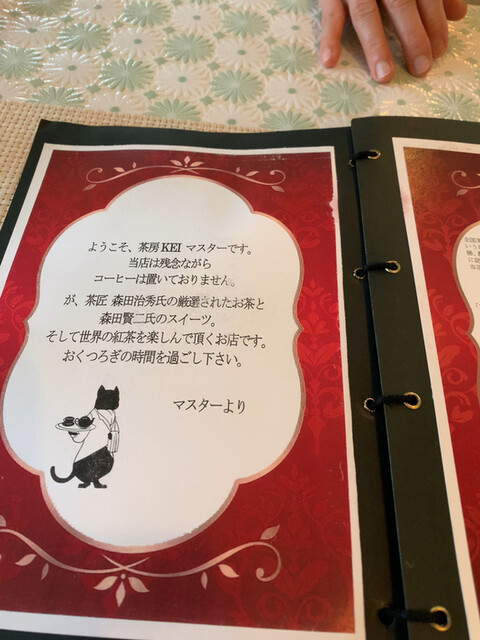 ようこそ、茶房 KEI マスターです。
当店は残念ながら
コーヒーは置いておりません。
が、茶匠 森田治秀氏の厳選されたお茶と
森田賢二氏のスイーツ。
そして世界の紅茶を楽しんで頂くお店です。
おくつろぎの時間を過ごし下さい。
マスターより
全国
いう